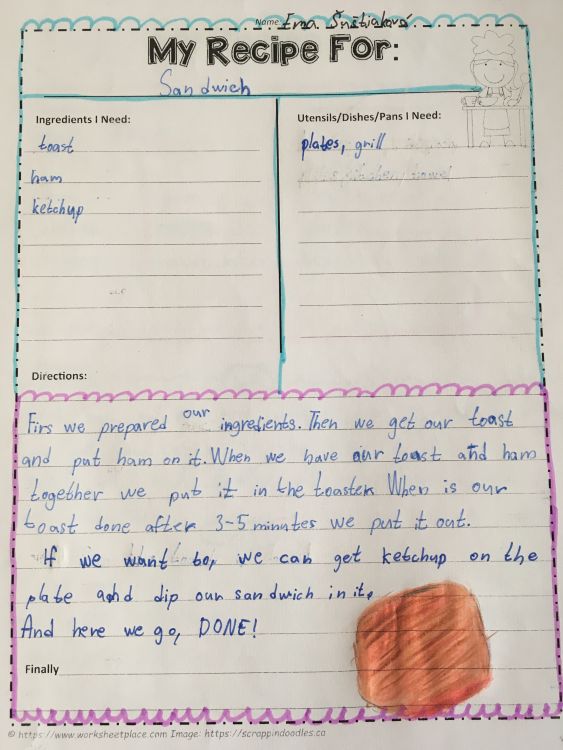 Name Ema
My Recipe For:
Sandwich
Ingredients I Need:
toast
ham
ketchup
Utensils/Dishes/Pans I Need:
plates, grill
Directions:
Firs we prepared our ingredients. Then we get our toast
and put ham on it. When we have our toast and ham
together we put it in the toaster. When is our
toast done after 3-5 minutes we put it out.
If we want to, we can get ketchup on the
plate and dip our sandwich in it.
And here we go, DONE!
Finally
© https://www.worksheetplace.com Image: https://scrappindoodles.ca